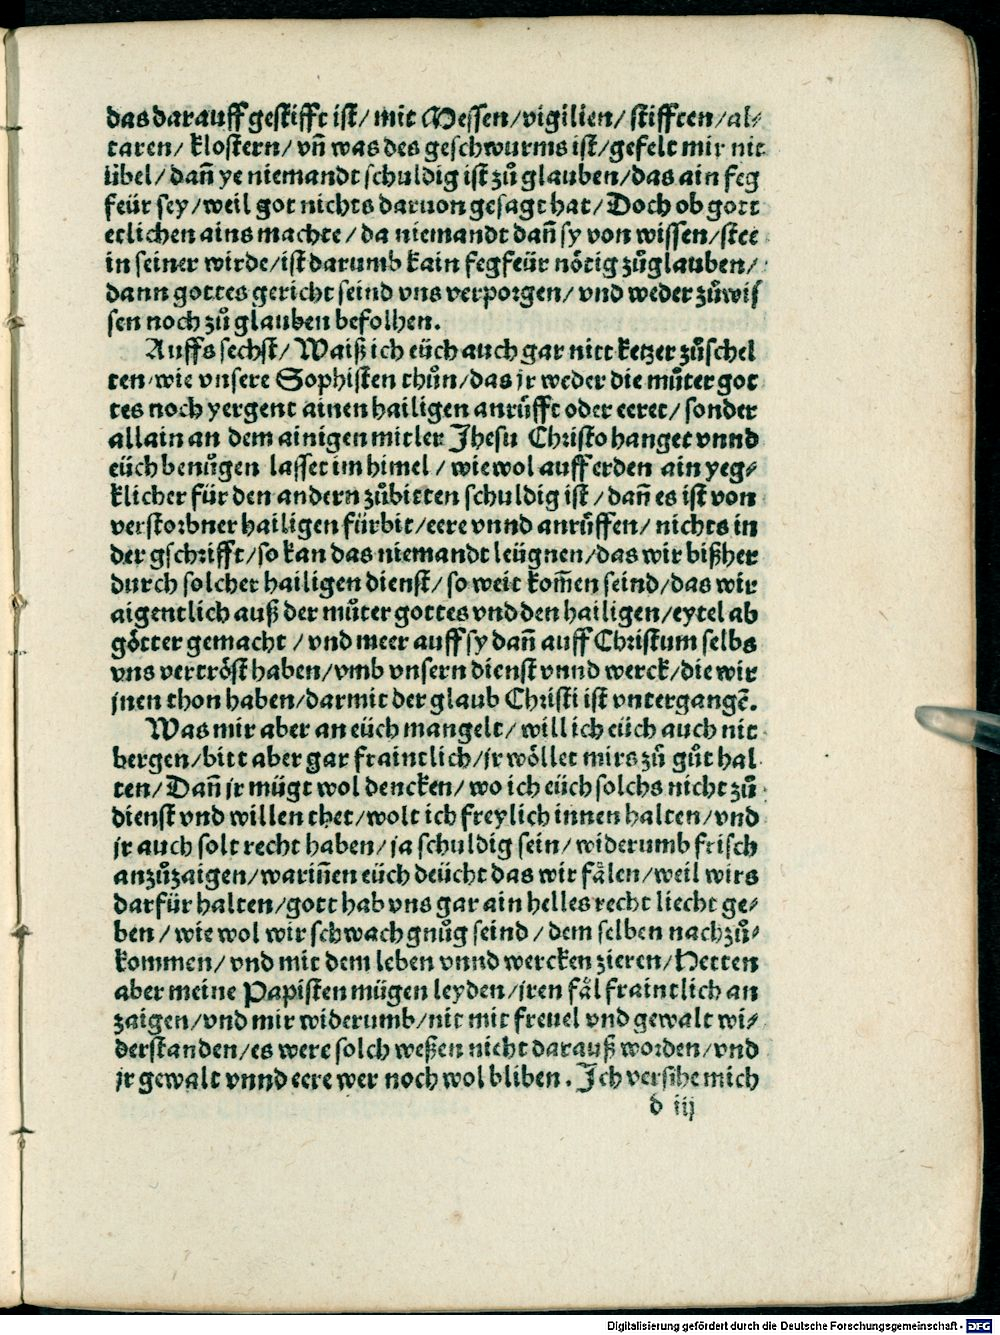 das darauff gestifft ist/ mit Messen/vigilien/ stifften/al⸗
taren/ klostern/ vñ was des geschwurms ist/gefelt mir nit
übel/ dañ ye niemandt schuldig ist zů glauben/das ain feg
feür sey/weil got nichts daruon gesagt hat/ Doch ob gott
etlichen ains machte/ da niemandt dañ sy von wissen/stee
in seiner wirde/ist darumb kain fegfeür nötig zůglauben/
dann gottes gericht seind vns verporgen/ vnd weder zůwis
sen noch zů glauben befolhen.
Auffs sechst/ Waiß ich eüch auch gar nitt ketzer zůschel
ten/wie vnsere Sophisten thůn/das jr weder die můter got
tes noch yergent ainen hailigen anrůfft oder eeret/ sonder
allain an dem ainigen mitler Jhesu Christo hanget vnnd
eüch benůgen lasset im himel/ wiewol auff erden ain yeg⸗
klicher für den andern zůbitten schuldig ist/ dañ es ist von
verstorbner hailigen fürbit/eere vnnd anrůffen/ nichts in
der gschrifft/so kan das niemandt leügnen/das wir bißher
durch solcher hailigen dienst/ so weit kom̃en seind/das wir
aigentlich auß der můter gottes vnd den hailigen/eytel ab
götter gemacht/ vnd meer auff sy dañ auff Christum selbs
vns vertröst haben/vmb vnsern dienst vnnd werck/die wir
jnen thon haben/darmit der glaub Christi ist vntergangẽ.
Was mir aber an eüch mangelt/ will ich eüch auch nit
bergen/bitt aber gar fraintlich/jr wöllet mirs zů gůt hal
ten/ Dañ jr mügt wol dencken/ wo ich eüch solchs nicht zů
dienst vnd willen thet/wolt ich freylich innen halten/vnd
jr auch solt recht haben/ja schuldig sein/ widerumb frisch
anzůzaigen/wariñen eüch deücht das wir fälen/weil wirs
darfür halten/gott hab vns gar ain helles recht liecht ge⸗
ben/ wie wol wir schwach gnůg seind/ dem selben nachzů⸗
kommen/ vnd mit dem leben vnnd wercken zieren/Hetten
aber meine Papisten mügen leyden/jren fäl fraintlich an
zaigen/vnd mir widerumb/nit mit freuel vnd gewalt wi⸗
derstanden/es were solch weßen nicht darauß worden/vnd
jr gewalt vnnd eere wer noch wol bliben. Ich versihe mich
d iij
Digitalisierung gefördert durch die Deutsche Forschungsgemeinschaft - DFG